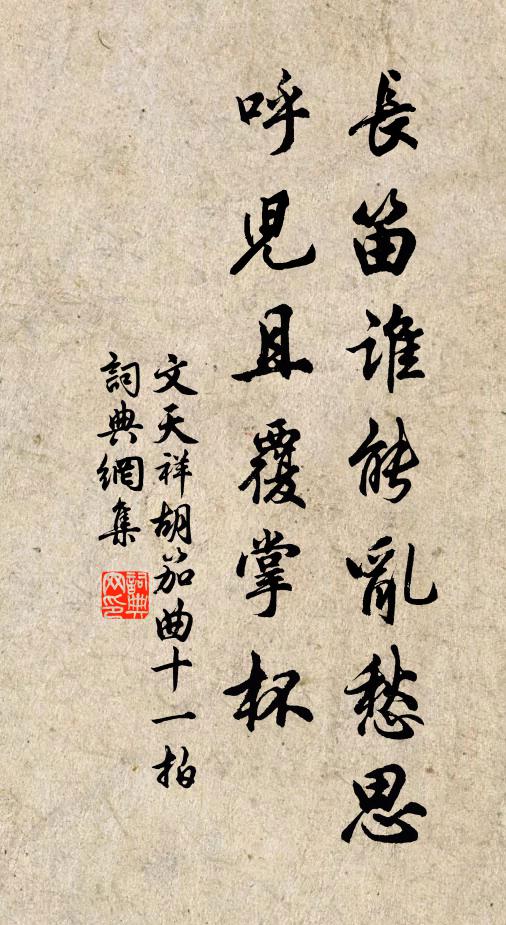 長笛誰能亂愁思
呼児且覆掌杯
文天祥胡笳曲十一拍
詞典網集
詞典網印